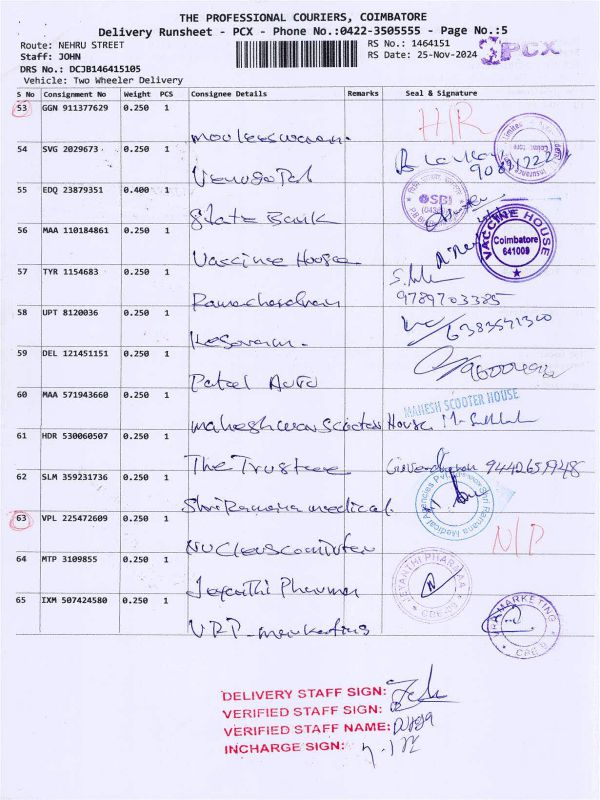 THE PROFESSIONAL COURIERS, COIMBATORE
Delivery Runsheet - PCX - Phone No.:0422-3505555 - Page No.:5
Route: NEHRU STREET
RS No.: 1464151
Staff: JOHN
RS Date: 25-Nov-2024
PCX
DRS No.: DCJB146415105
Vehicle: Two Wheeler Delivery
S No Consignment No Weight PCS Consignee Details Remarks Seal & Signature
53 GGN 911377629 0.250 1
mouleeswaran.
54 SVG 2029673 0.250 1
Venugopal
55 EDQ 23879351 0.400 1
State Bank
SBI
56 MAA 110184861 0.250 1
Vaccine House
VACCINE HOUSE
Coimbatore
641009
57 TYR 1154683 0.250 1
Ramachandran
9789703385
58 UPT 8120036 0.250 1
Kesavan.
6383541300
59 DEL 121451151 0.250 1
Patel Auto
60 MAA 571943660 0.250 1
MAHESH SCOOTER HOUSE
maheshwari Scooter House
61 HDR 530060507 0.250 1
The Trustee
9442651948
62 SLM 359231736 0.250 1
Shri Ramana medical.
Shri Ramana Medical Agencies Pvt
63 VPL 225472609 0.250 1
N/P
Nucleus computer
64 MTP 3109855 0.250 1
Jeyanthi Pharma
JEYANTHI PHARMAA
65 IXM 507424580 0.250 1
VRP-marketing
MARKETING
DELIVERY STAFF SIGN:
VERIFIED STAFF SIGN:
VERIFIED STAFF NAME:
INCHARGE SIGN: